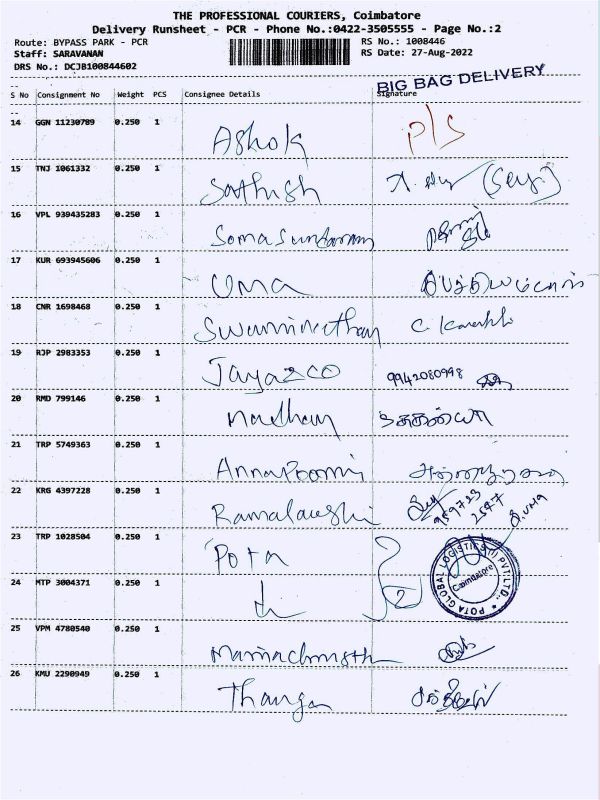 THE PROFESSIONAL COURIERS, Coimbatore
Delivery Runsheet - PCR - Phone No.:0422-3505555 - Page No.:2
Route: BYPASS PARK - PCR
RS No.: 1008446
Staff: SARAVANAN
RS Date: 27-Aug-2022
DRS No.: DCJB100844602
BIG BAG DELIVERY
S No Consignment No Weight PCS Consignee Details Signature
14 GGN 11230789 0.250 1 Ashok P/S
15 TNJ 1061332 0.250 1 Sathish
16 VPL 939435283 0.250 1 Soma Sundaram
17 KUR 693945606 0.250 1 Uma
18 CNR 1698468 0.250 1 Swaminathan
19 RJP 2983353 0.250 1 Jaya & CO 9942080998
20 RMD 799146 0.250 1
21 TRP 5749363 0.250 1 AnnaPoorni
22 KRG 4397228 0.250 1
23 TRP 1028504 0.250 1 Pota
POTA GLOBAL LOGISTICS (I) PVT.LTD.,
Coimbatore
24 MTP 3004371 0.250 1 2
25 VPM 4780540 0.250 1
26 KMU 2290949 0.250 1